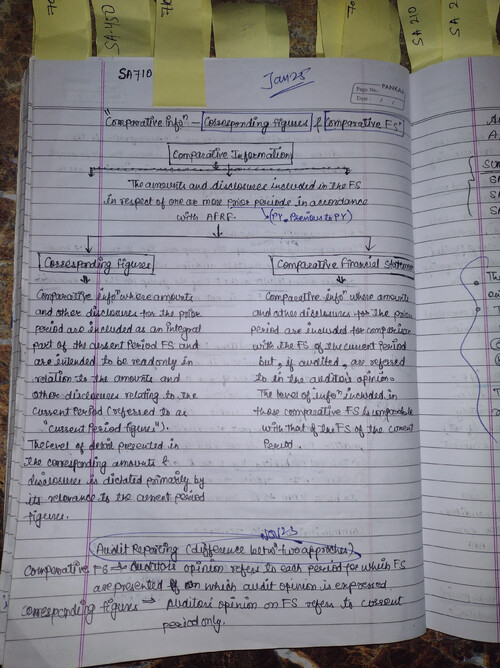 SA-450
70
SA 210
SA 2
SA 710
Jan 25
Page No.: PANKAJ
Date: / /
"Comparative infoⁿ – Corresponding figures & Comparative FS"
Comparative Information
The amounts and disclosures included in the FS
in respect of one or more prior periods in accordance
with AFRF.
(PY, Previous to PY)
Corresponding figures
Comparative infoⁿ where amounts
and other disclosures for the prior
period are included as an integral
part of the current Period FS and
are intended to be read only in
relation to the amounts and
other disclosures relating to the
current Period (referred to as
"current Period figures").
The level of detail presented in
the corresponding amounts &
disclosures is dictated primarily by
its relevance to the current period
figures.
Comparative Financial Stateme
Comparative infoⁿ where amounts
and other disclosures for the prior
period are included for comparison
with the FS of the current Period
but, if audited, are referred
to in the auditor's opinion.
The level of infoⁿ included in
those comparative FS is comparable
with that of the FS of the current
Period.
Nov 23
Audit Reporting (difference betwⁿ two approaches)
Comparative FS → Auditors opinion refers to each period for which FS
are presented & on which audit opinion is expressed
Corresponding figures → Auditors opinion on FS refers to current
period only.